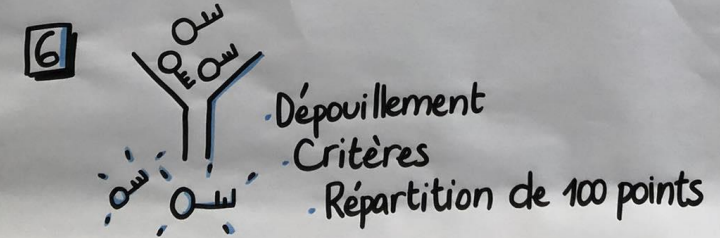 6
. Dépouillement
. Critères
. Répartition de 100 points